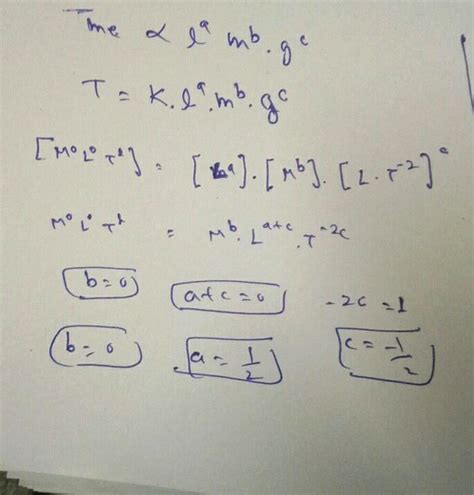 Time ∝ l^a m^b . g^c
T = K . l^a . m^b . g^c
[M⁰L⁰T¹] = [L^a] . [M^b] . [L . T⁻²]^c
M⁰L⁰T¹ = M^b . L^(a+c) . T^(-2c)
b=0 a+c=0 -2c=1
b=0 a=1/2 c=-1/2